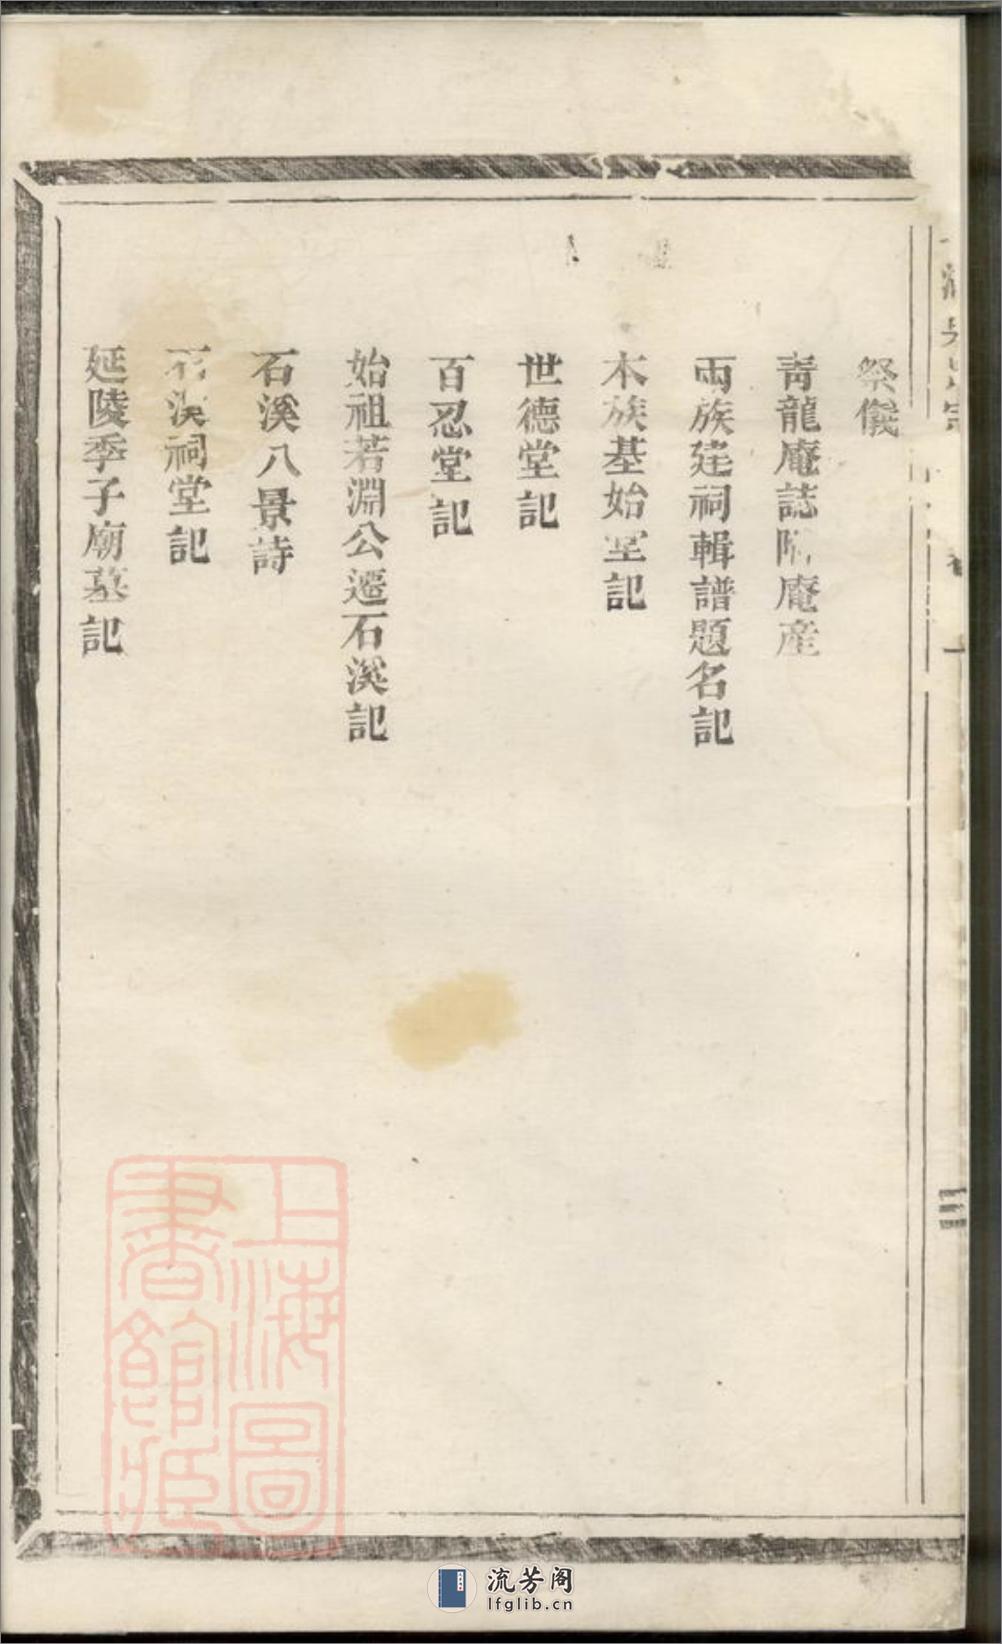 祭儀
青龍庵誌附庵產
兩族建祠輯譜題名記
本族基始堂記
世德堂記
百忍堂記
始祖若淵公遷石溪記
石溪八景詩
石溪祠堂記
延陵季子廟墓記
三
上海圖書館藏
流芳阁
lfglib.cn